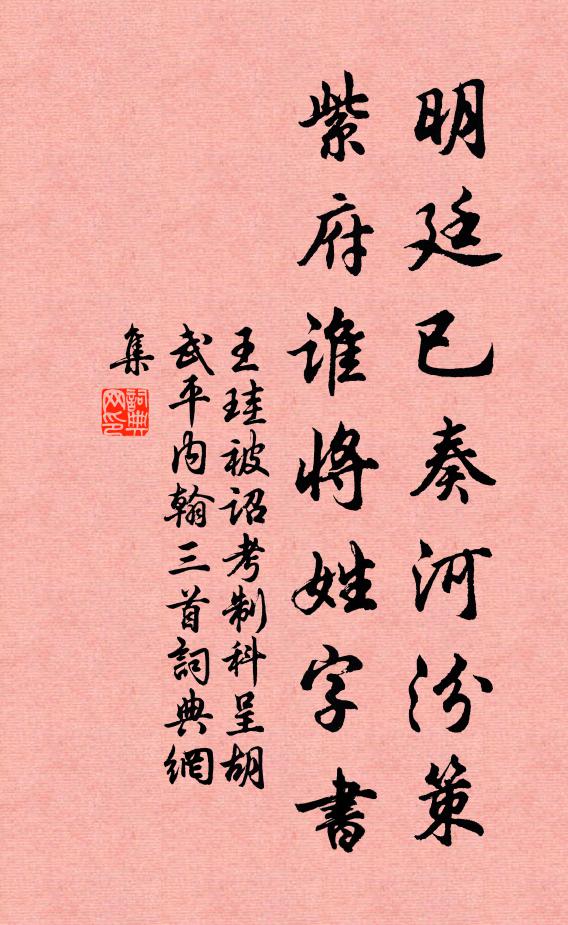 明廷已奏河汾策
紫府谁将姓字書
王珪被诏考制科呈胡
武平内翰三首詞典網
集
詞典
网印